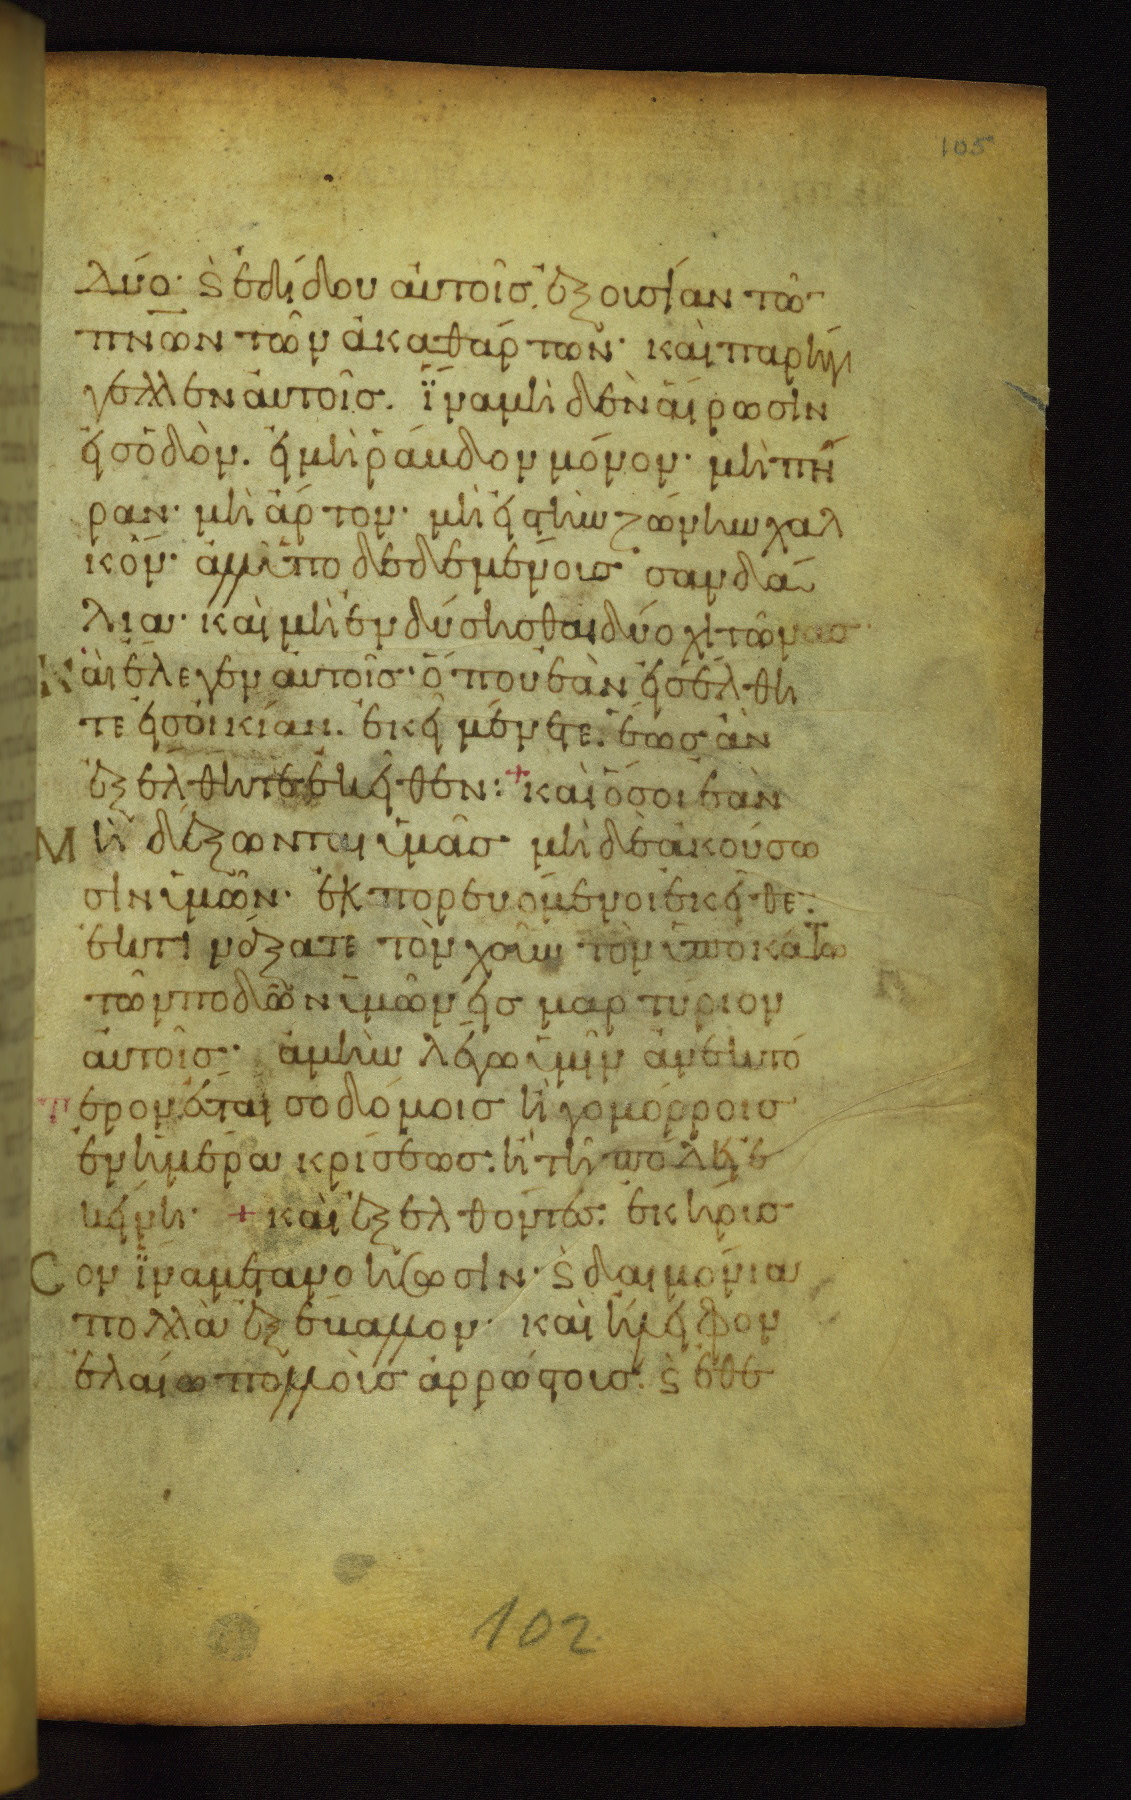 105
λύο· ϛ̀ ἐδίδου αὐτοῖς ἐξουσίαν τῶ
πν̅ων τῶν ἀκαθάρτων· καὶ παρήγ
γελλεν αὐτοῖς. ἵνα μὴ δὲν αἴρωσιν
εἰς ὁδὸν. εἰ μὴ ῥάυδον μόνον· μὴ πή
ραν· μὴ ἄρτον· μὴ εἰς τὴν ζώνην χαλ
κόν· ἀλλ' ὑποδεδεμένοις σανδά
λια· καὶ μὴ ἐνδύσησθαι δύο χιτῶνας·
Κ αὶ ἔλεγεν αὐτοῖς· ὅπου ἐὰν εἰσέλθη
τε εἰς οἰκίαν. ἐκεῖ μένετε. ἕως ἂν
ἐξέλθητε ἐκεῖθεν: + καὶ ὅσοι ἐὰν
Μ ὴ δέξωνται ὑμᾶς· μὴ δὲ ἀκούσω
σιν ὑμῶν· ἐκπορευόμενοι ἐκεῖθε·
ἐκτινάξατε τὸν χοῦν τὸν ὑποκάτω
τῶν ποδῶν ὑμῶν εἰς μαρτύριον
αὐτοῖς· ἀμὴν λέγω ὑμῖν ἀνεκτό
ερον ἔσται σοδόμοις ἢ γομόρροις
ἐν ἡμέρα κρίσεως: ἢ τῆ πόλει ἐ
κείνη· + καὶ ἐξελθόντες: ἐκήρισ
C ον ἵνα μετανοήσωσιν· ϛ̀ δαιμόνια
πολλὰ ἐξέβαλλον· καὶ ἤλειφον
ἐλαίω πολλοὺς ἀρρώστοις· ϛ̀ ἐθε
102